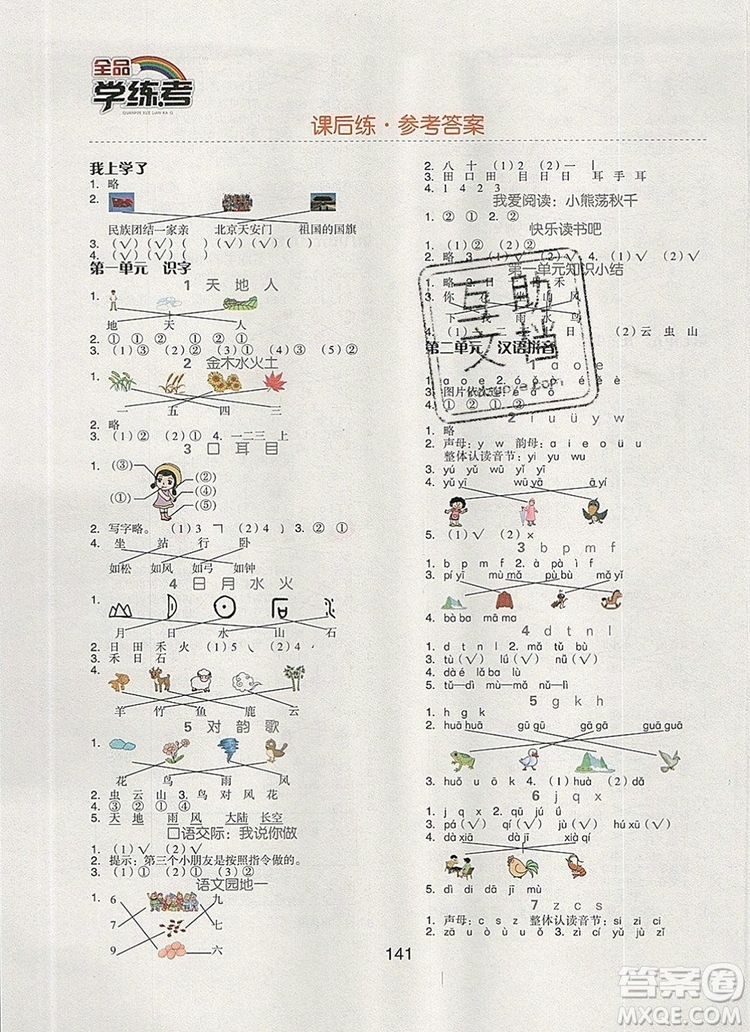 全品
学练考
QUANPIN XUE LIAN KAO
课后练·参考答案
我上学了
1. 略
2.
民族团结一家亲 北京天安门 祖国的国旗
3. (√)(√)( )(√)(√)
4. (√)( )(√)(√)( )
第一单元 识字
1 天 地 人
1.
地 天 人
2. ① ① ② ①
3. (1)② (2)① (3)②
2 金木水火土
1.
一 五 四 三
2. 略
3. (1)② (2)① 4. 一二三 上
3 口 耳 目
1. (③) (②)
(①) (④)
(⑤)
2. 写字略。 (1)3 ㇕ (2)4 丿 3. ② ①
4. 坐 站 行 卧
如松 如风 如弓 如钟
4 日 月 水 火
1.
月 日 水 山 石
2. 日 田 禾 火 (1)5 ㇏ (2)4
3. 禾 日 石
4.
羊 竹 鱼 鹿 云
5 对 韵 歌
1.
花 鸟 雨 风
2. 虫 云 山 3. 鸟 对 风 花
4. ③ ② ①
5. 天 地 雨 风 大陆 长空
口语交际：我说你做
1. (√)(√)
2. 提示：第三个小朋友是按照指令做的。
3. (1)③ (2)② (3)①
语文园地一
1. 6 九
7 七
9 六
2. 八 十 (1)2 (2)一 丨
3. 田 口 田 日 目 耳 手 耳
4. 1 4 2 3
我爱阅读：小熊荡秋千
1. ② ① 2. ②
快乐读书吧
1. (1)② (2)①
2. ② 3. (1)② (2)② 4. (1)√ (2)√
第一单元知识小结
1. 略
3. 你 花 山 风
下 我 雨 鸟
(2)云 虫 山
第二单元 汉语拼音
1 a o e
图片依次
4. ① ② ① ②
2 i u ü y w
1. 略
2. 声母：y w 韵母：a i e o u ü
整体认读音节：yi yu wu
3. yú yǔ wǔ
4. yǔ yī wūyā āyí
5. (1)√ (2)×
3 b p m f
1. b p m f 2. à pà ì f
3. pí yǐ mù mǎ pù bù mǎ yǐ
4. bà ba mā ma
4 d t n l
1. d t n l 2. mǎ tǔ bǔ
3. tù (√) lù (√) lí (√)
4. dà é lǎ ba lù
5. tǔ—dì nǚ—nǔ nǐ—lǐ
5 g k h
1. h g k
2. huā huā gū gū gā gā guā guā
3. huǒ u ō k 4. (1)① (2)②
6 j q x
1. j q x 2. j q x j q x
3. pá (√) qí (√) hú xū (√)
4. xià qí mù jī dà xià
5. dì dì dā jī dǐ dā
7 z c s
1. 声母：c s z 整体认读音节：si zi ci
141
互助文档
答案圈
MXQE.COM